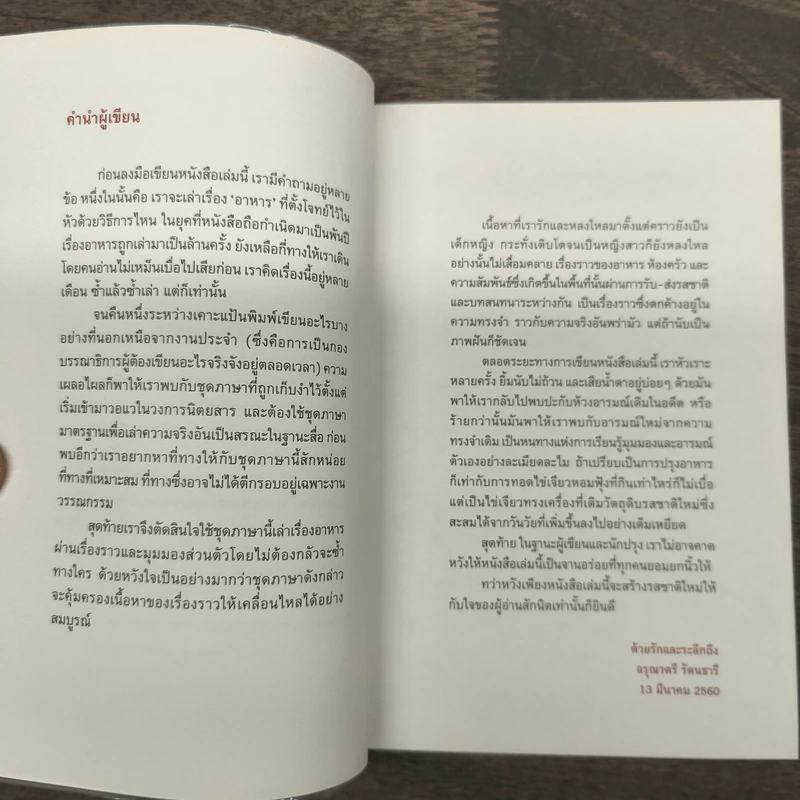 คำนำผู้เขียน
ก่อนลงมือเขียนหนังสือเล่มนี้ เรามีคำถามอยู่หลาย
ข้อ หนึ่งในนั้นคือ เราจะเล่าเรื่อง ‘อาหาร’ ที่ตั้งโจทย์ไว้ใน
หัวด้วยวิธีการไหน ในยุคที่หนังสือถือกำเนิดมาเป็นพันปี
เรื่องอาหารถูกเล่ามาเป็นล้านครั้ง ยังเหลือกี่ทางให้เราเดิน
โดยคนอ่านไม่เหม็นเบื่อไปเสียก่อน เราคิดเรื่องนี้อยู่หลาย
เดือน ซ้ำแล้วซ้ำเล่า แต่ก็เท่านั้น
จนคืนหนึ่งระหว่างเคาะแป้นพิมพ์เขียนอะไรบาง
อย่างที่นอกเหนือจากงานประจำ (ซึ่งคือการเป็นกอง
บรรณาธิการผู้ต้องเขียนอะไรจริงจังอยู่ตลอดเวลา) ความ
เผลอไผลก็พาให้เราพบกับชุดภาษาที่ถูกเก็บงำไว้ตั้งแต่
เริ่มเข้ามาอวลในวงการนิตยสาร และต้องใช้ชุดภาษา
มาตรฐานเพื่อเล่าความจริงอันเป็นสรณะในฐานะสื่อ ก่อน
พบอีกว่าเราอยากหาที่ทางให้กับชุดภาษานี้สักหน่อย
ที่ทางที่เหมาะสม ที่ทางซึ่งอาจไม่ได้ตีกรอบอยู่เฉพาะงาน
วรรณกรรม
สุดท้ายเราจึงตัดสินใจใช้ชุดภาษานี้เล่าเรื่องอาหาร
ผ่านเรื่องราวและมุมมองส่วนตัวโดยไม่ต้องกลัวจะซ้ำ
ทางใคร ด้วยหวังใจเป็นอย่างมากว่าชุดภาษาดังกล่าว
จะคุ้มครองเนื้อหาของเรื่องราวให้เคลื่อนไหลได้อย่าง
สมบูรณ์
เนื้อหาที่เรารักและหลงใหลมาตั้งแต่คราวยังเป็น
เด็กหญิง กระทั่งเติบโตจนเป็นหญิงสาวก็ยังหลงใหล
อย่างนั้นไม่เสื่อมคลาย เรื่องราวของอาหาร ห้องครัว และ
ความสัมพันธ์ซึ่งเกิดขึ้นในพื้นที่นั้นผ่านการรับ-ส่งรสชาติ
และบทสนทนาระหว่างกัน เป็นเรื่องราวซึ่งตกค้างอยู่ใน
ความทรงจำ ราวกับความจริงอันพร่ามัว แต่ถ้านับเป็น
ภาพฝันก็ชัดเจน
ตลอดระยะทางการเขียนหนังสือเล่มนี้ เราหัวเราะ
หลายครั้ง ยิ้มนับไม่ถ้วน และเสียน้ำตาอยู่บ่อยๆ ด้วยมัน
พาให้เรากลับไปพบปะกับห้วงอารมณ์เดิมในอดีต หรือ
ร้ายกว่านั้นมันพาให้เราพบกับอารมณ์ใหม่จากความ
ทรงจำเดิม เป็นหนทางแห่งการเรียนรู้มุมมองและอารมณ์
ตัวเองอย่างละเมียดละไม ถ้าเปรียบเป็นการปรุงอาหาร
ก็เท่ากับการทอดไข่เจียวหอมฟุ้งที่กินเท่าไหร่ก็ไม่เบื่อ
แต่เป็นไข่เจียวทรงเครื่องที่เติมวัตถุดิบรสชาติใหม่ซึ่ง
สะสมได้จากวันวัยที่เพิ่มขึ้นลงไปอย่างเต็มเหยียด
สุดท้าย ในฐานะผู้เขียนและนักปรุง เราไม่อาจคาด
หวังให้หนังสือเล่มนี้เป็นจานอร่อยที่ทุกคนยอมยกนิ้วให้
ทว่าหวังเพียงหนังสือเล่มนี้จะสร้างรสชาติใหม่ให้
กับใจของผู้อ่านสักนิดเท่านั้นก็ยินดี
ด้วยรักและระลึกถึง
อรุณวตรี รัตนธารี
13 มีนาคม 2560